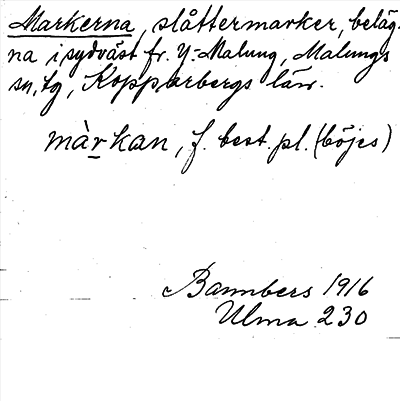 Markerna, slåttermarker, beläg-
na i sydväst fr. Y. Malung, Malungs
sn, tg, Kopparbergs län.
màrkan, f. best. pl. (böjes)
Bannbers 1916
Ulma 230